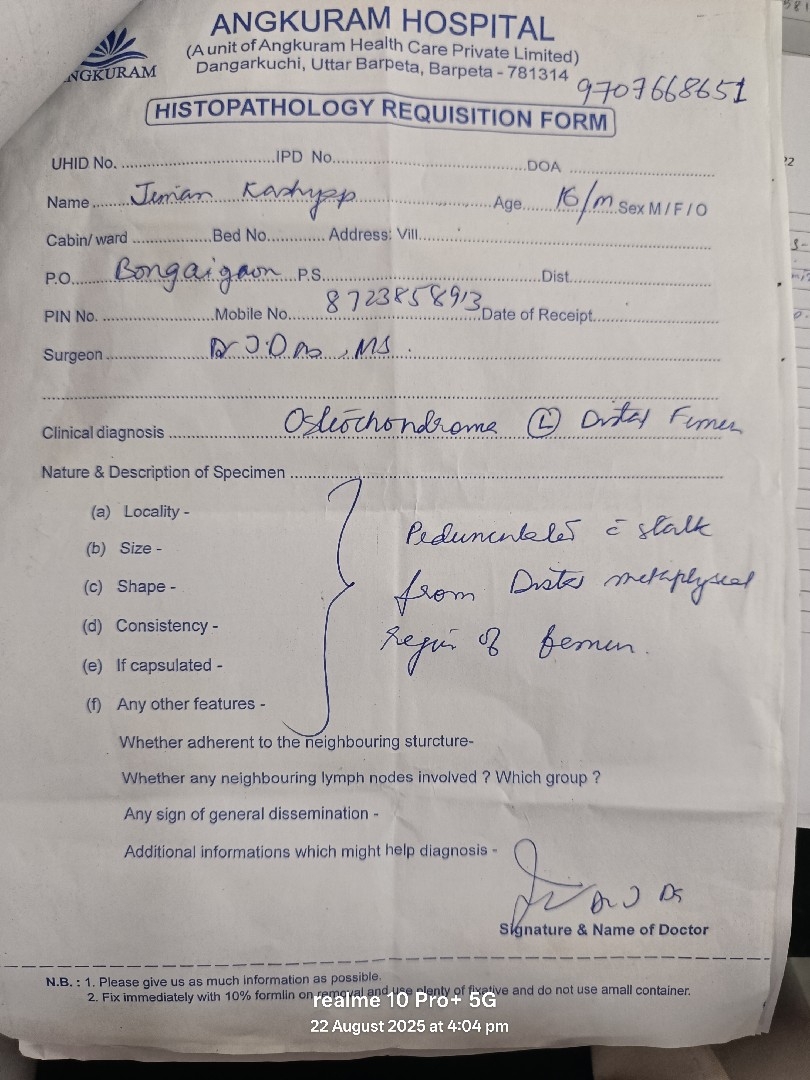 ANGKURAM HOSPITAL
(A unit of Angkuram Health Care Private Limited)
Dangarkuchi, Uttar Barpeta, Barpeta - 781314
NGKURAM
9707668651
HISTOPATHOLOGY REQUISITION FORM
UHID No. ..............................IPD No......................................DOA ..............................
Name ....... Jeman Kashypp ..............................Age...... 16/m Sex M / F / O
Cabin/ ward ................Bed No............. Address: Vill..............................
P.O...... Bongaigaon P.S..............................Dist..............................
PIN No. ......................Mobile No. 8723858913 Date of Receipt..............................
Surgeon .................. Dr J. Das, MS.
Clinical diagnosis ..................... Osteochondroma (L) Distal Femur
Nature & Description of Specimen ..............................
(a) Locality -
(b) Size -
(c) Shape -
(d) Consistency -
(e) If capsulated -
(f) Any other features -
Pedunculated c̄ stalk
from Distal metaphyseal
region of femur.
Whether adherent to the neighbouring sturcture-
Whether any neighbouring lymph nodes involved ? Which group ?
Any sign of general dissemination -
Additional informations which might help diagnosis -
Dr J Das
Signature & Name of Doctor
N.B. : 1. Please give us as much information as possible.
2. Fix immediately with 10% formlin on removal and use plenty of fixative and do not use amall container.
realme 10 Pro+ 5G
22 August 2025 at 4:04 pm